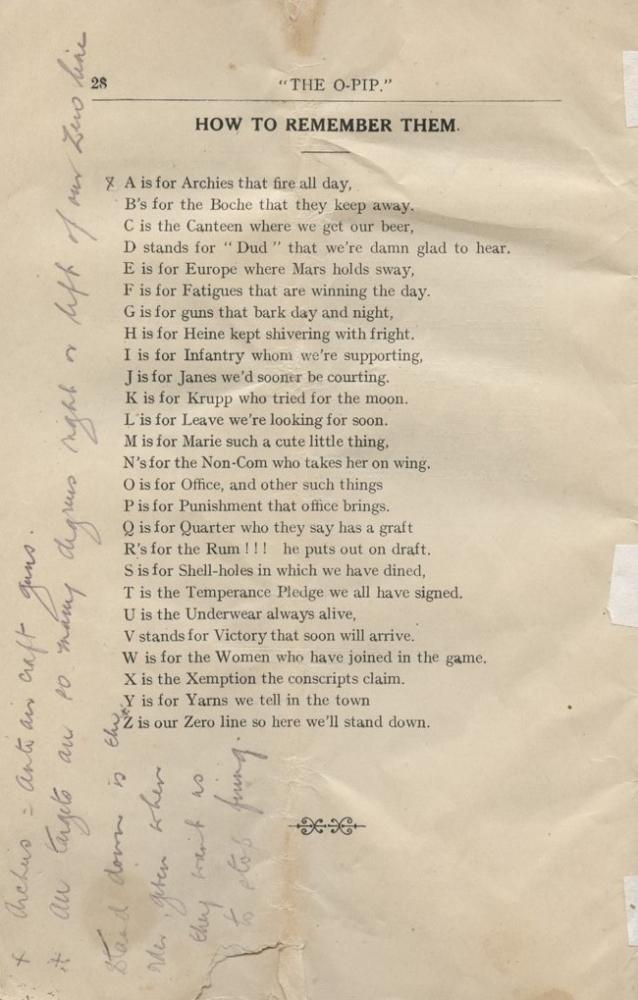 28
"THE O-PIP."
HOW TO REMEMBER THEM.
x A is for Archies that fire all day,
B's for the Boche that they keep away.
C is the Canteen where we get our beer,
D stands for "Dud" that we're damn glad to hear.
E is for Europe where Mars holds sway,
F is for Fatigues that are winning the day.
G is for guns that bark day and night,
H is for Heine kept shivering with fright.
I is for Infantry whom we're supporting,
J is for Janes we'd sooner be courting.
K is for Krupp who tried for the moon.
L is for Leave we're looking for soon.
M is for Marie such a cute little thing,
N's for the Non-Com who takes her on wing.
O is for Office, and other such things
P is for Punishment that office brings.
Q is for Quarter who they say has a graft
R's for the Rum ! ! ! he puts out on draft.
S is for Shell-holes in which we have dined,
T is the Temperance Pledge we all have signed.
U is the Underwear always alive,
V stands for Victory that soon will arrive.
W is for the Women who have joined in the game.
X is the Xemption the conscripts claim.
Y is for Yarns we tell in the town
* Z is our Zero line so here we'll stand down.
x Archies = anti air craft guns.
* all targets are so many degrees right or left of our Zero line
Stand down is the
order given when
they want us
to stop firing.